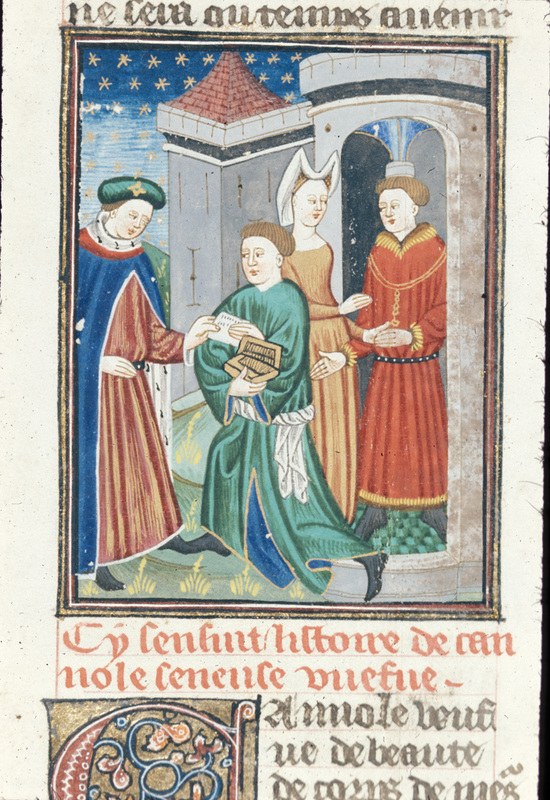 ne sera au temps auenir
Cy sensuit listoire de cam
nole seneuse vuefue
Amiole veuf
ue de beaute
de corps de mes